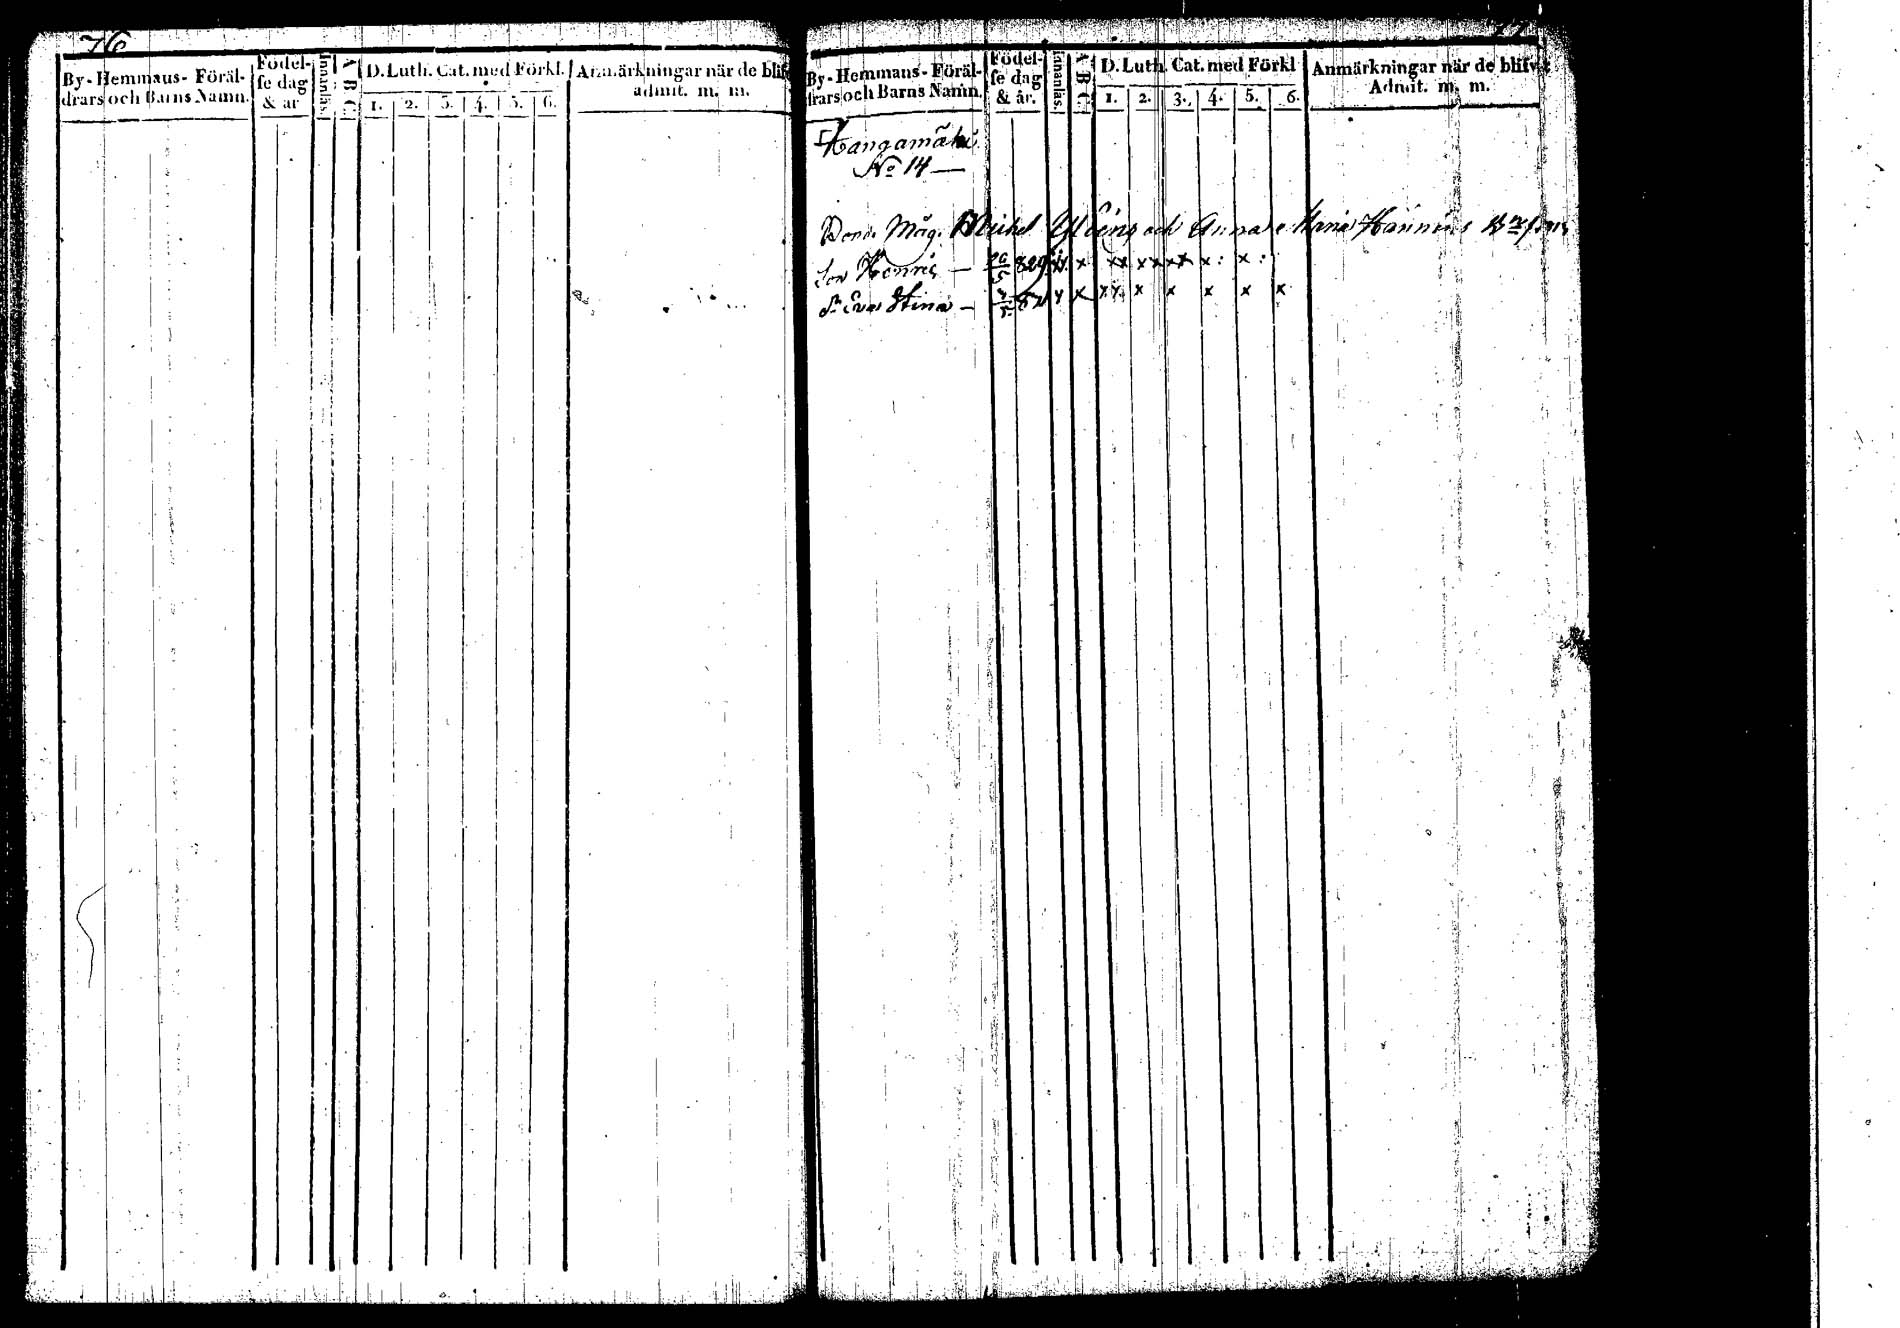 76
By-Hemmans-Föräl-
drars och Barns Namn.
Födel-
se dag
& år
Innanläs.
A B C.
D. Luth. Cat. med Förkl.
1. 2. 3. 4. 5. 6.
Anmärkningar när de blifv
admit. m. m.
77
By-Hemmans-Föräl-
drars och Barns Namn.
Födel-
se dag
& år.
Innanläs.
A B C.
D. Luth. Cat. med Förkl
1. 2. 3. 4. 5. 6.
Anmärkningar när de blifvit
Admit. m. m.
Kangamäki
No 14
Bond. Måg. Michel och Anna Maria
Son Henric — 5 829 x xx xx xx x: x:
Dr Eva Stina — 5 x x xx x x x x x